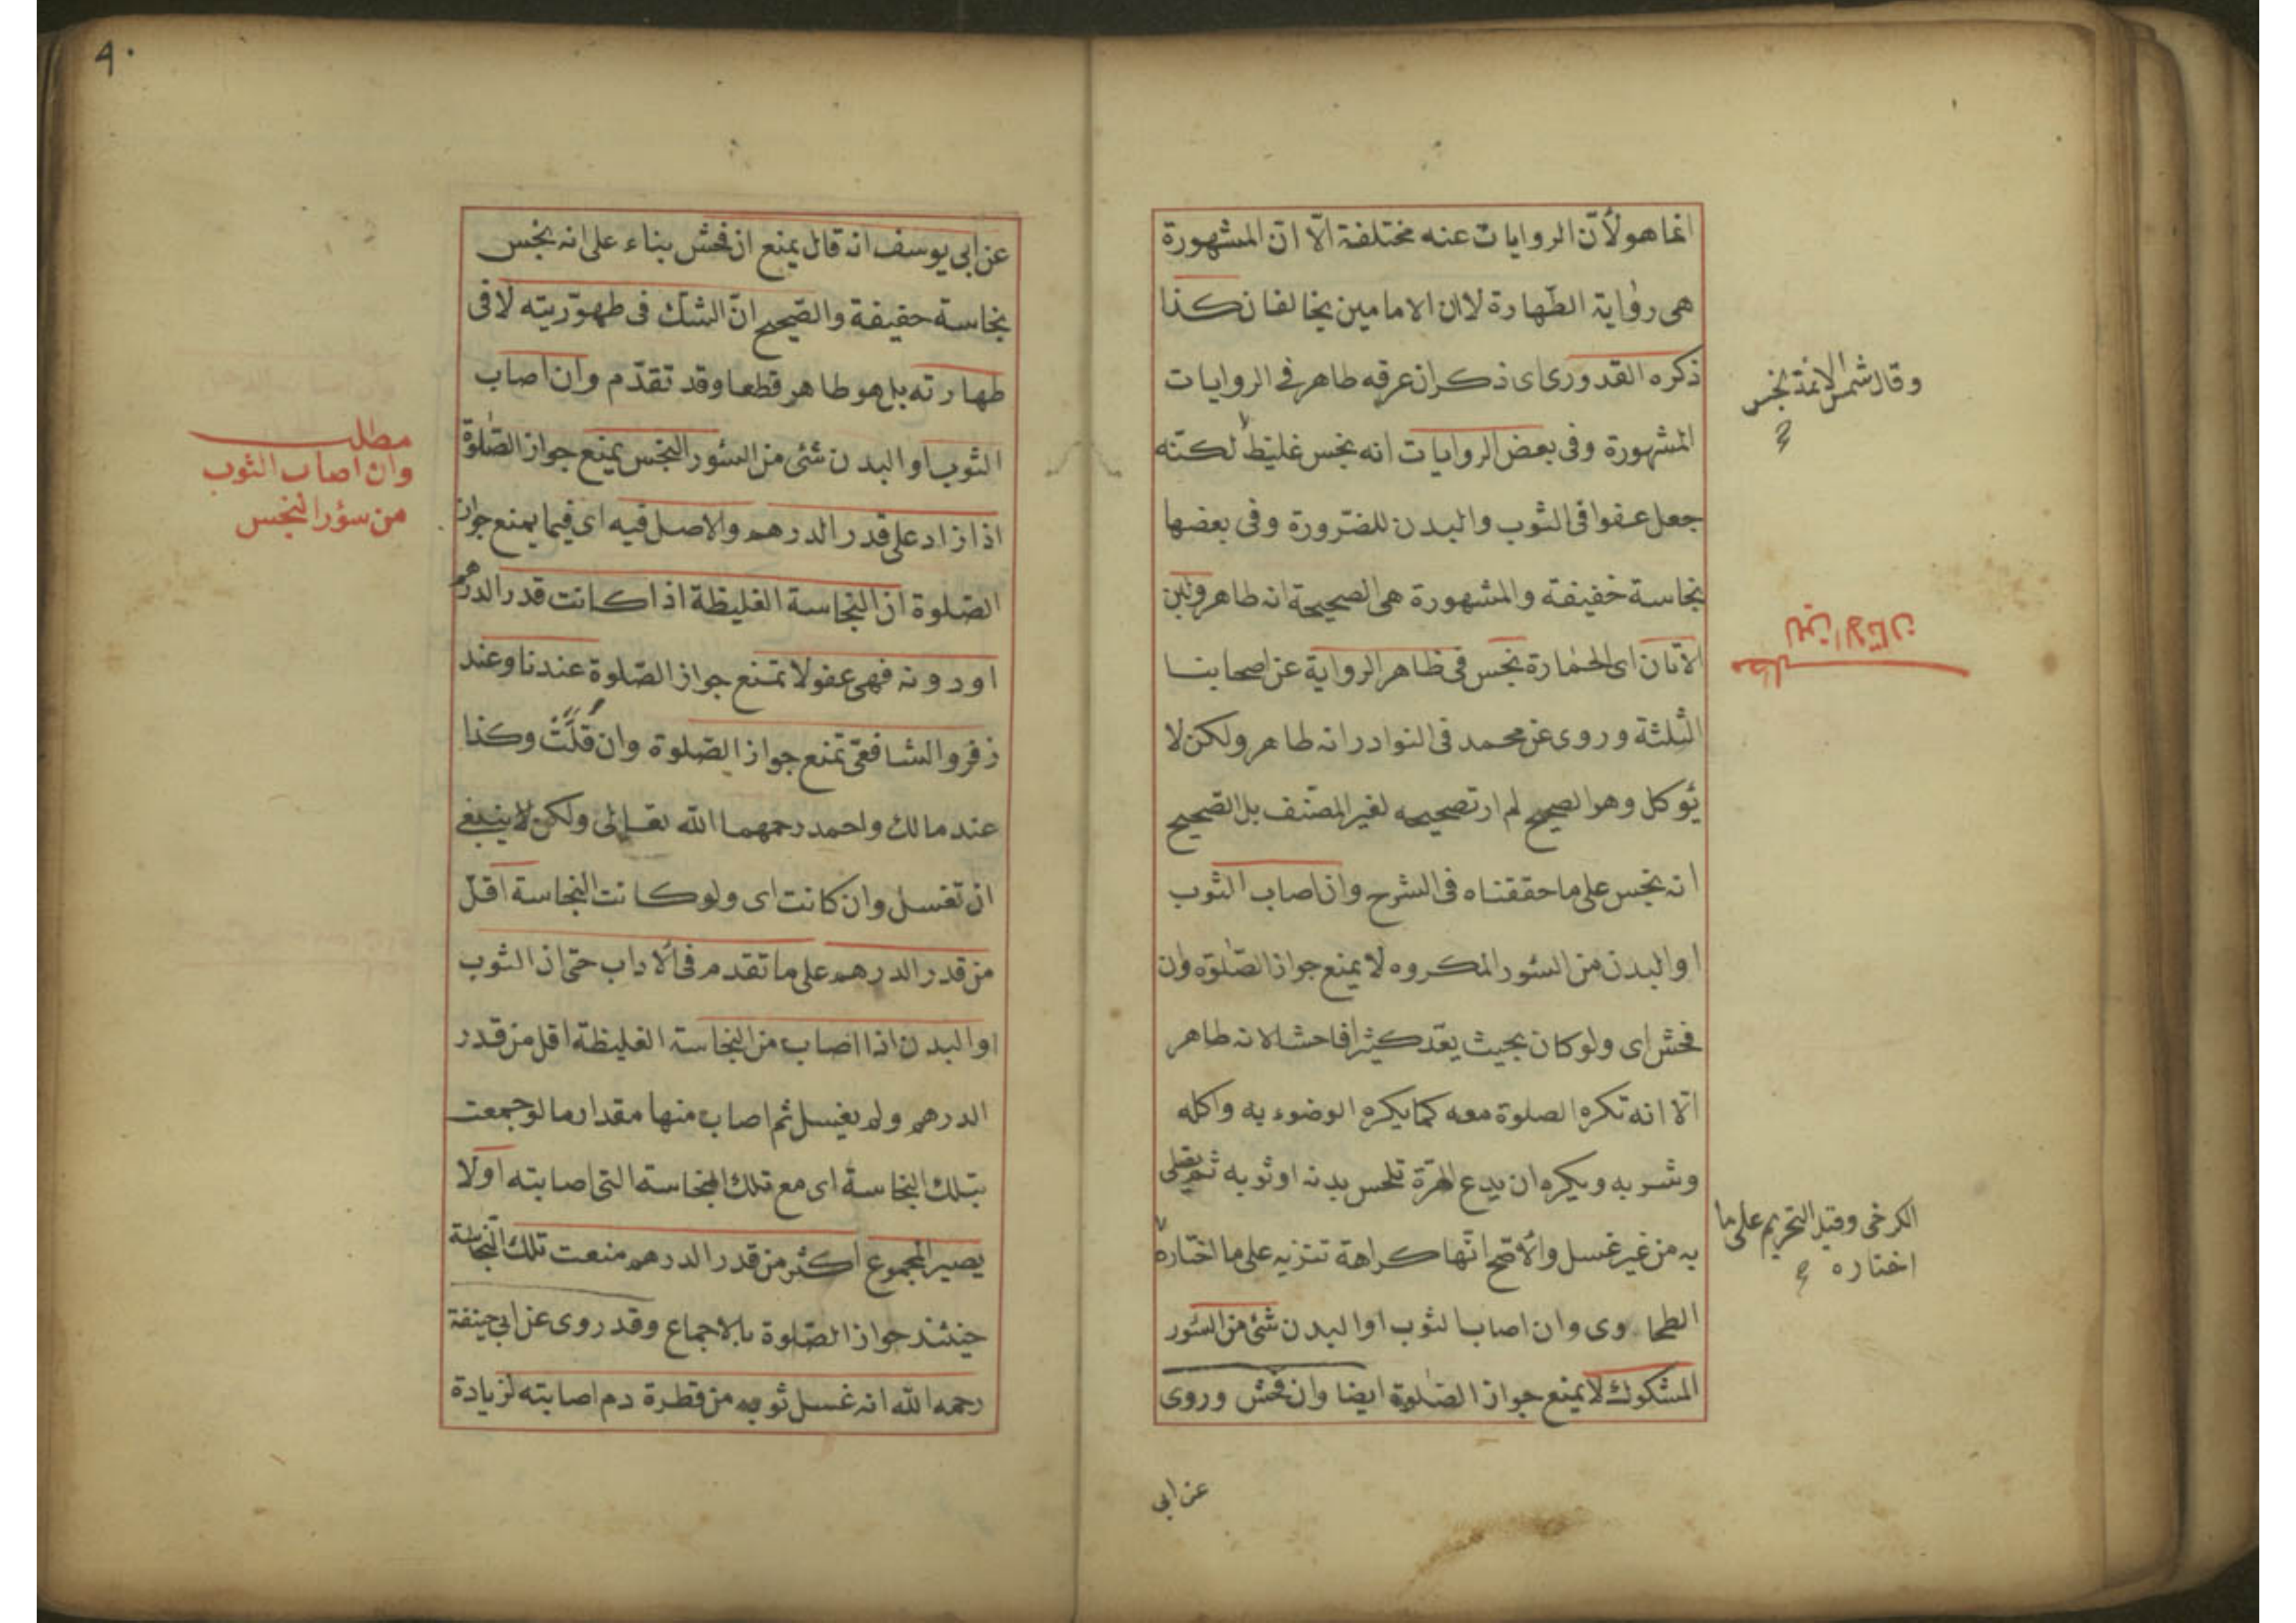 انما هو لأنّ الروايات عنه مختلفة الّا انّ المشهورة
هى رواية الطّهارة لا ان الامامين يخالفان كذا
ذكره القدورى اى ذكر ان عرقه طاهر فى الروايات
المشهورة وفى بعض الروايات انه نجس غليظ لكنّه
جعل عفوا فى الثوب والبدن للضّرورة وفى بعضها
نجاسة خفيفة والمشهورة هى الصحيحة انه طاهر ولبن
الأتان اى الحمارة نجس فى ظاهر الرواية عن اصحابنا
الثلثة وروى عن محمد فى النوادر انه طاهر ولكن لا
يؤكل وهو الصحيح لم ار تصحيحه لغير المصنّف بل الصّحيح
انه نجس على ما حققناه فى الشرح وان اصاب الثوب
او البدن من السئور المكروه لا يمنع جواز الصّلوة وان
فحش اى ولو كان بحيث يعدّ كثيرا فاحشا لانه طاهر
الّا انه تكره الصلوة معه كما يكره الوضوء به واكله
وشربه ويكره ان يدع الهرّة تلحس بدنه او ثوبه ثم يصلى
به من غير غسل والأصّح انّها كراهة تنزيه على ما اختاره
الطحاوى وان اصاب الثوب او البدن شئ من السئور
المشكوك لا يمنع جواز الصّلوة ايضا وان فحش وروى
عن ابى
وقال شمس الائمة نجس
مطلب
لبن الاتان
الكرخى وقيل التحريم على ما
اختاره
٩٠
عن ابى يوسف انه قال يمنع ان فحش بناء على انه نجس
نجاسة خفيفة والصّحيح انّ الشكّ فى طهوريّته لا فى
طهارته بل هو طاهر قطعا وقد تقدّم وان اصاب
الثوب او البدن شئ من السئور النجس يمنع جواز الصّلوة
اذا زاد على قدر الدرهم والاصل فيه اى فيما يمنع جواز
الصّلوة ان النجاسة الغليظة اذا كانت قدر الدرهم
او دونه فهى عفو لا تمنع جواز الصّلوة عندنا وعند
زفر والشافعى تمنع جواز الصّلوة وان قلّت وكذا
عند مالك واحمد رحمهما الله تعالى ولكن لا ينبغى
ان تغسل وان كانت اى ولو كانت النجاسة اقلّ
من قدر الدرهم على ما تقدم فى الاداب حتى ان الثوب
او البدن اذا اصاب من النجاسة الغليظة اقل من قدر
الدرهم ولم يغسل ثم اصاب منها مقدار ما لو جمعت
بتلك النجاسة اى مع تلك النجاسة التى اصابته اولا
يصير المجموع اكثر من قدر الدرهم منعت تلك النجاسة
حينئذ جواز الصّلوة بالاجماع وقد روى عن ابى حنيفة
رحمه الله انه غسل ثوبه من قطرة دم اصابته لزيادة
مطلب
وان اصاب الثوب
من سؤر النجس